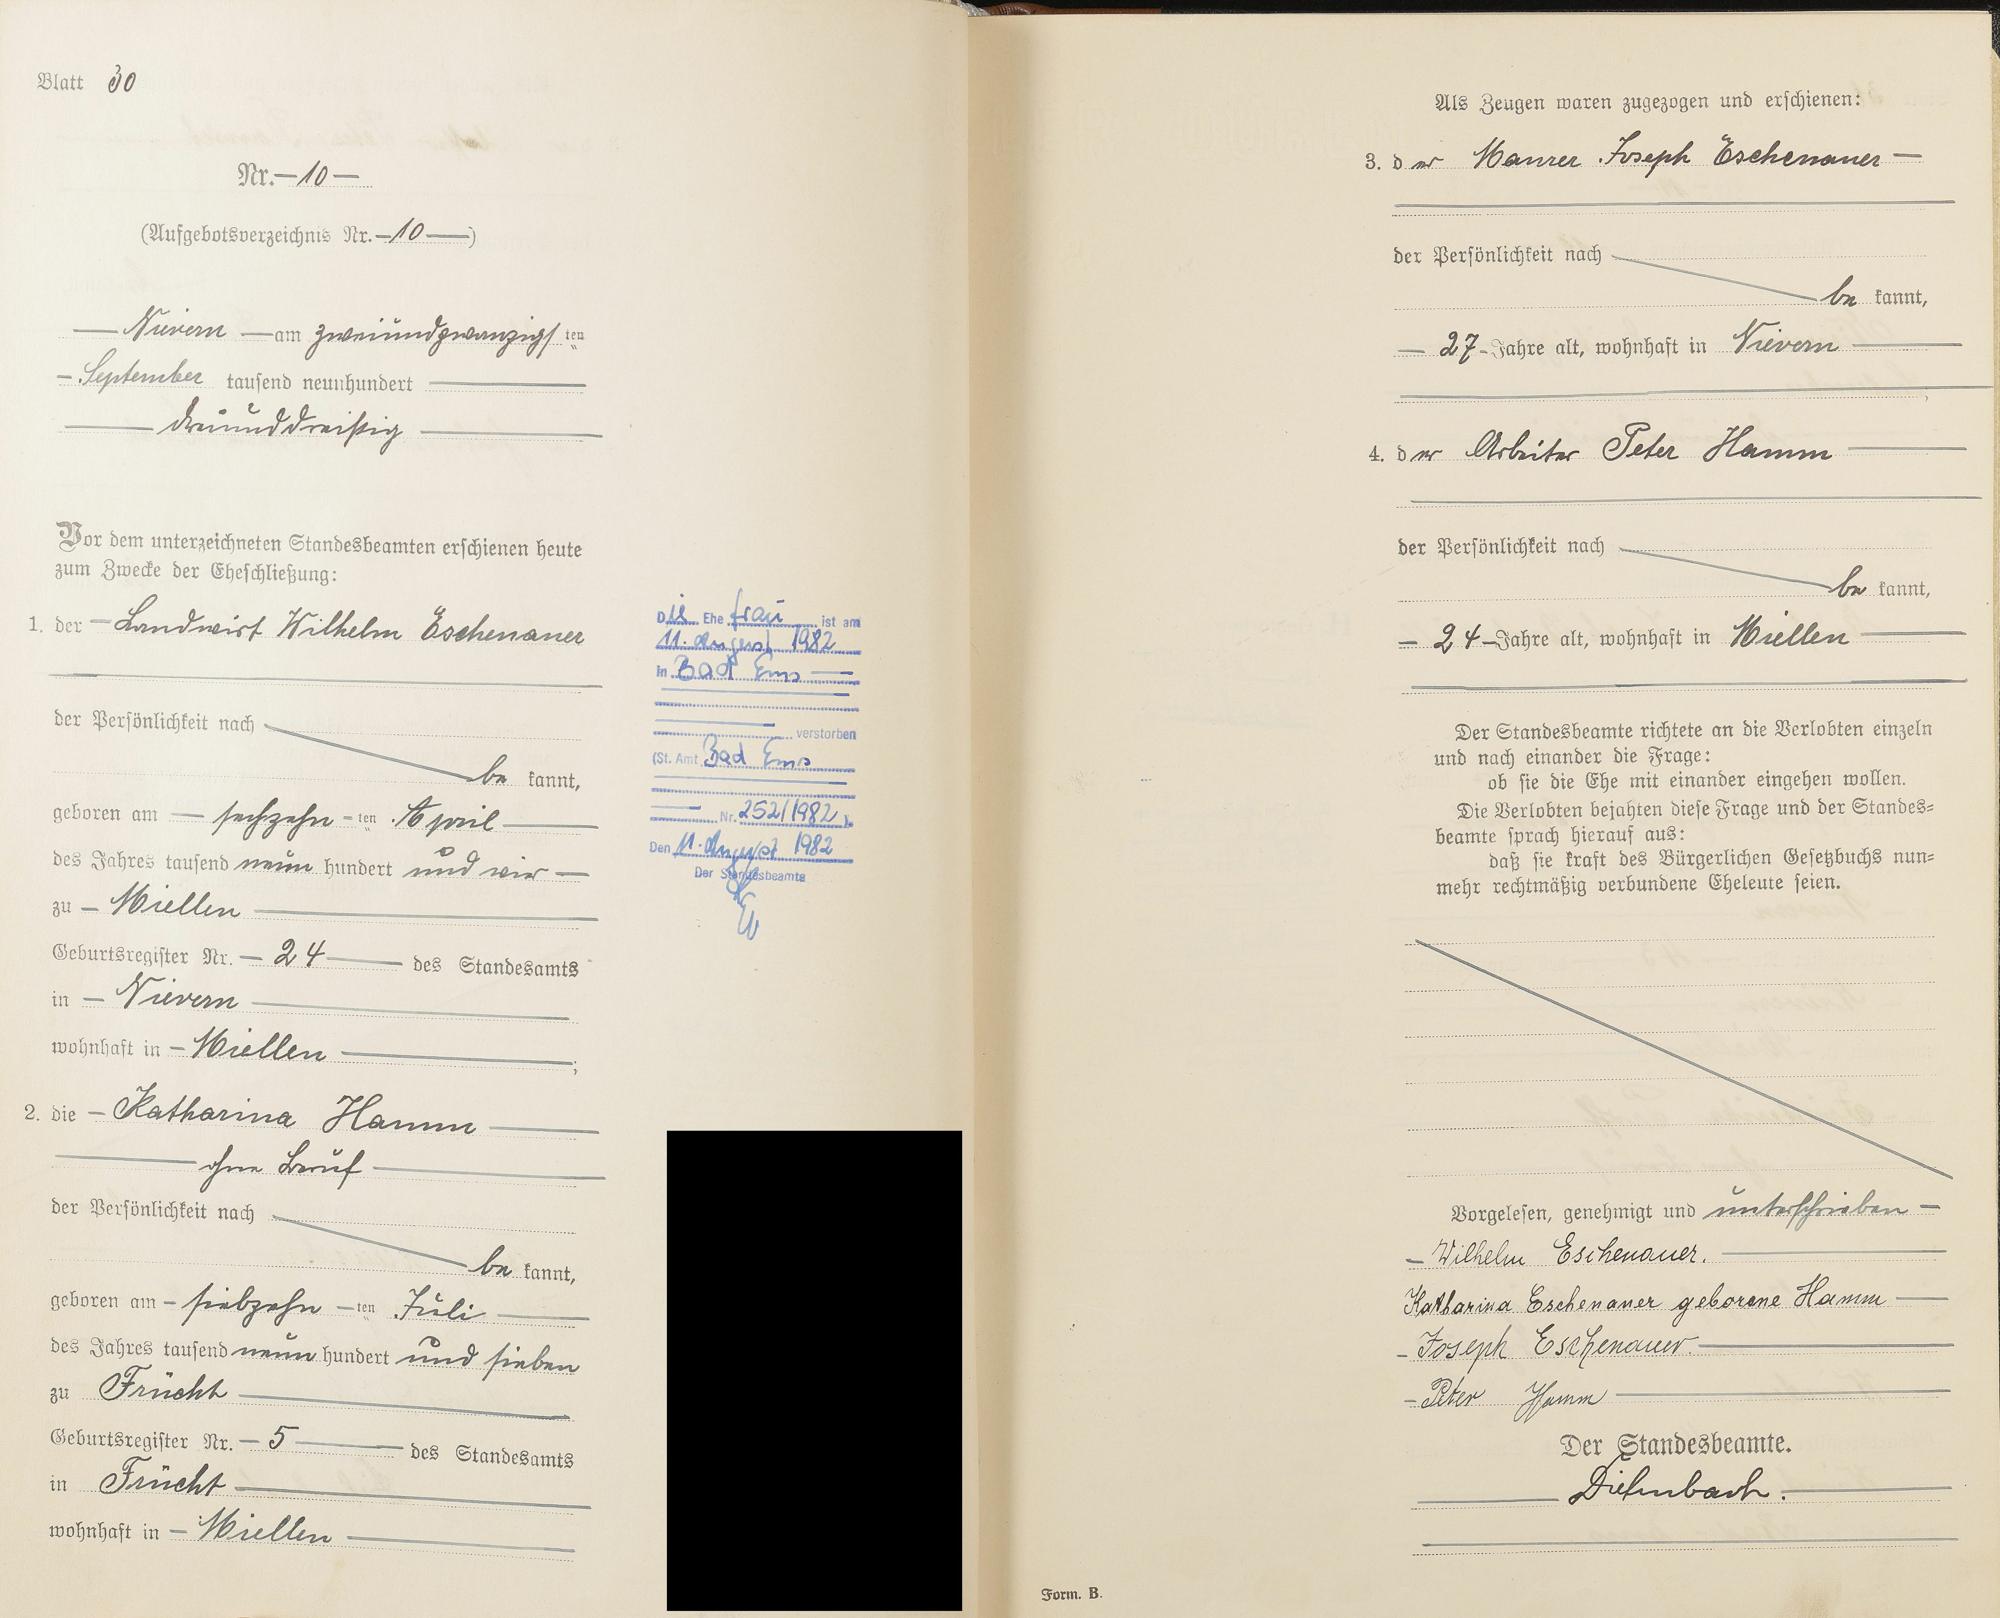 Blatt 30
Nr. — 10 —
(Aufgebotsverzeichnis Nr. — 10 —)
— Nievern — am zweiundzwanzigsten
— September tausend neunhundert —
— dreiunddreißig —
Vor dem unterzeichneten Standesbeamten erschienen heute
zum Zwecke der Eheschließung:
1. der — Landwirt Wilhelm Eschenauer
der Persönlichkeit nach
be kannt,
geboren am — sechzehn – ten April —
des Jahres tausend neun hundert und vier —
zu — Miellen —
Geburtsregister Nr. — 24 — des Standesamts
in — Nievern —
wohnhaft in — Miellen — ;
2. die — Katharina Hamm —
— ohne Beruf —
der Persönlichkeit nach
be kannt,
geboren am — siebzehn — ten Juli —
des Jahres tausend neun hundert und sieben
zu Frücht —
Geburtsregister Nr. — 5 — des Standesamts
in Frücht —
wohnhaft in — Miellen —
Die Ehe frau ist am
11. August 1982
in Bad Ems —
verstorben
(St. Amt Bad Ems
— Nr. 252/1982 ).
Den 11. August 1982
Der Standesbeamte
Als Zeugen waren zugezogen und erschienen:
3. der Maurer Joseph Eschenauer —
der Persönlichkeit nach
be kannt,
— 27 – Jahre alt, wohnhaft in Nievern —
4. der Arbeiter Peter Hamm —
der Persönlichkeit nach
be kannt,
— 24 — Jahre alt, wohnhaft in Miellen —
Der Standesbeamte richtete an die Verlobten einzeln
und nach einander die Frage:
ob sie die Ehe mit einander eingehen wollen.
Die Verlobten bejahten diese Frage und der Standes=
beamte sprach hierauf aus:
daß sie kraft des Bürgerlichen Gesetzbuchs nun=
mehr rechtmäßig verbundene Eheleute seien.
Vorgelesen, genehmigt und unterschrieben —
— Wilhelm Eschenauer. —
Katharina Eschenauer geborene Hamm —
— Joseph Eschenauer. —
— Peter Hamm —
Der Standesbeamte.
— Diefenbach. —
Form. B.